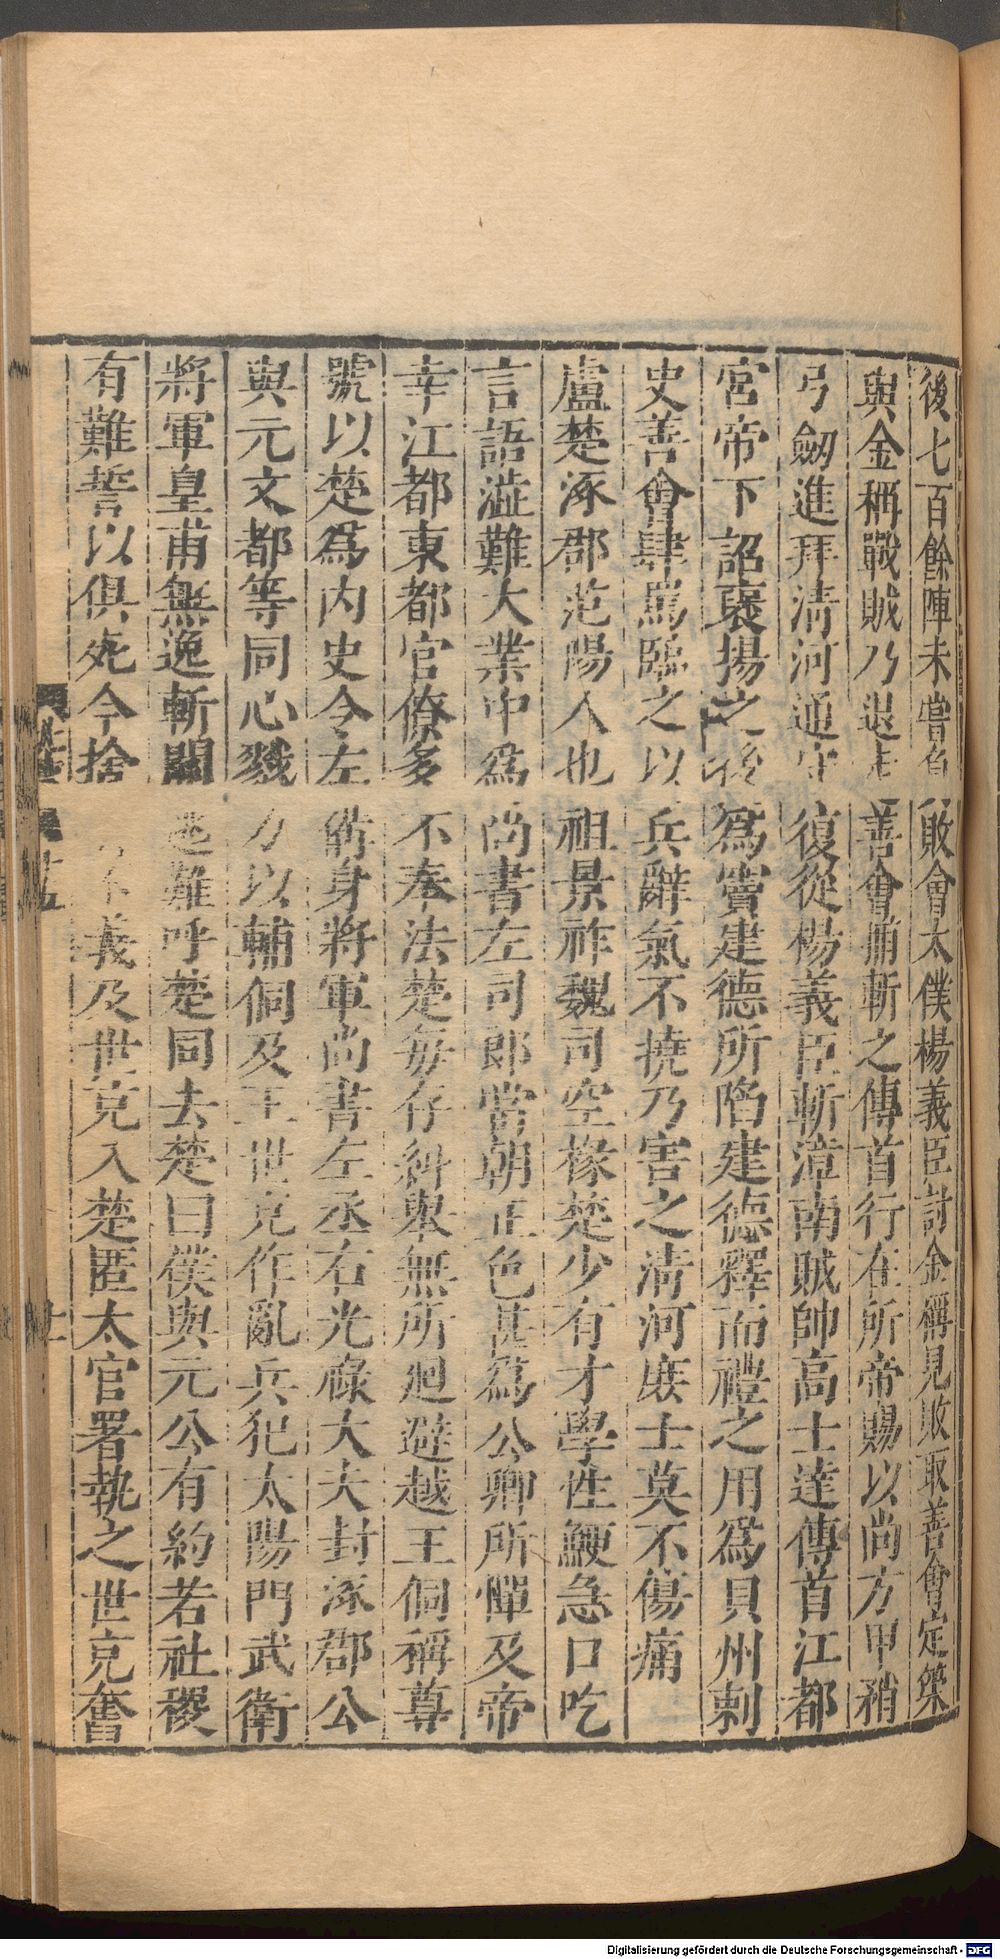 後七百餘陣未嘗負敗會太僕楊義臣討金稱見敗取善會定策
與金稱戰賊乃退走善會捕斬之傳首行在所帝賜以尚方甲矟
弓劔進拜清河通守復從楊義臣斬漳南賊帥高士達傳首江都
宮帝下詔褒揚之後爲竇建德所陷建德釋而禮之用爲貝州刺
史善會肆罵臨之以兵辭氣不撓乃害之清河庶士莫不傷痛
盧楚涿郡范陽人也祖景祚魏司空掾楚少有才學性鯁急口吃
言語澁難大業中爲尚書左司郎當朝正色甚爲公卿所憚及帝
幸江都東都官僚多不奉法楚每存糾舉無所廻避越王侗稱尊
號以楚爲內史令左備身將軍尚書左丞右光祿大夫封涿郡公
與元文都等同心戮力以輔侗及王世充作亂兵犯太陽門武衛
將軍皇甫無逸斬關逃難呼楚同去楚曰僕與元公有約若社稷
有難誓以俱死今捨去不義及世充入楚匿太官署執之世充奮
十五
Digitalisierung gefördert durch die Deutsche Forschungsgemeinschaft - DFG